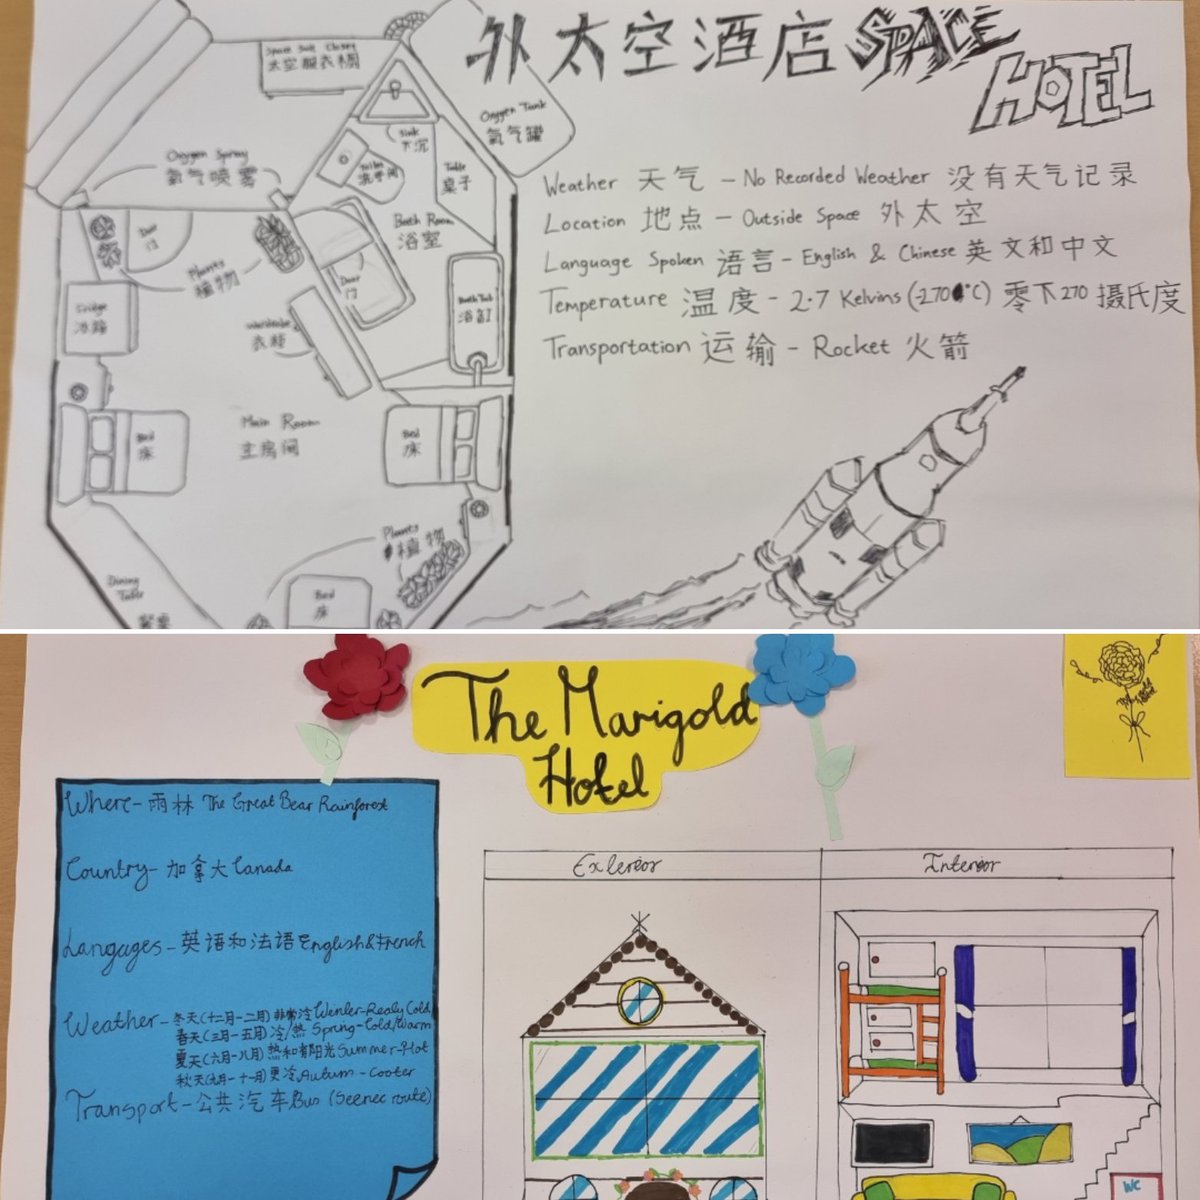 外太空酒店 SPACE HOTEL
Space Suit Closet
太空服衣橱
Oxygen Tank
氧气罐
Oxygen Spray
氧气喷雾
Sink
下沉
Toilet
洗手间
Table
桌子
Bath Room
浴室
Door
门
Door
门
Plants
植物
Fridge
冰箱
Wardrobe
衣柜
Bath Tub
浴缸
Main Room
主房间
Bed
床
Bed
床
Plants
植物
Dining
Table
餐桌
Bed
床
Weather 天气 - No Recorded Weather 没有天气记录
Location 地点 - Outside Space 外太空
Language Spoken 语言 - English & Chinese 英文和中文
Temperature 温度 - 2.7 Kelvins (-270°C) 零下270 摄氏度
Transportation 运输 - Rocket 火箭
The Marigold
Hotel
Where - 雨林 The Great Bear Rainforest
Country - 加拿大 Canada
Langages - 英语和法语 English & French
Weather - 冬天(十二月-二月)非常冷 Winter - Realy Cold
春天(三月-五月)冷/热 Spring - Cold/Warm
夏天(六月-八月)热和有阳光 Summer - Hot
秋天(九月-十一月)更冷 Autum - Cooter
Transport - 公共汽车 Bus (Seenec route)
Exterior
Interior
WC